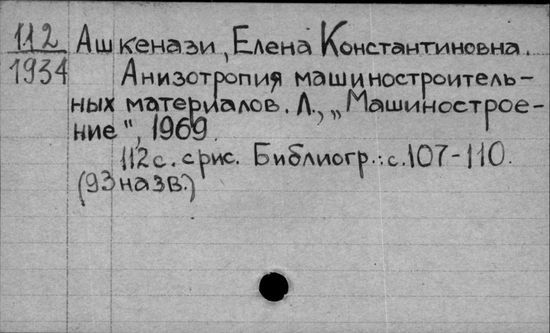 112 Ашкенази, Елена Константиновна.
1934 Анизотропия машиностроитель-
ных материалов. Л., „Машинострое-
ние", 1969.
112 с. с рис. Библиогр.: с. 107-110.
(93 назв.)